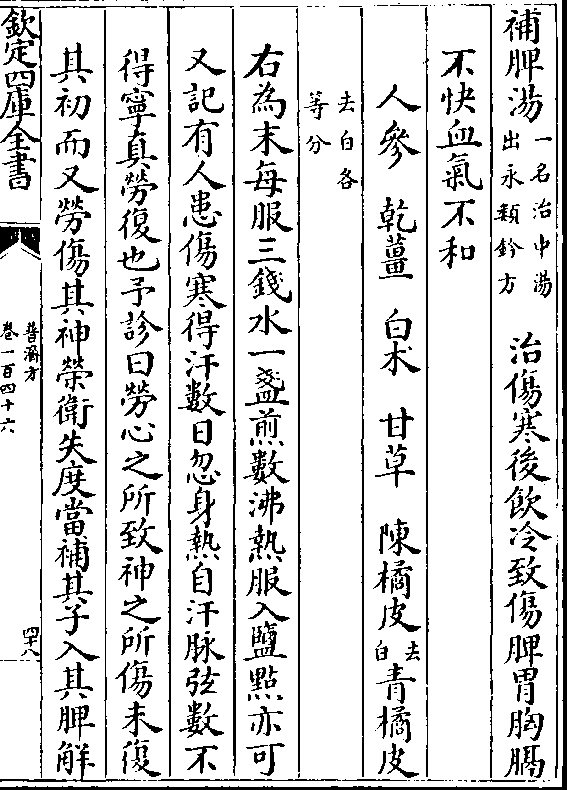 補脾湯一名治中湯出永類鈐方 治傷寒後飲冷致傷脾胃胸膈
不快血氣不和
人參 乾薑 白术 甘草 陳橘皮去白 青橘皮
去白各等分
右為末每服三錢水一盞煎數沸熱服入鹽㸃亦可
又記有人患傷寒得汗數日忽身熱自汗脉弦數不
得寧真勞復也予診曰勞心之所致神之所傷未復
其初而又勞傷其神榮衛失度當補其子入其脾解
欽定四庫全書
普濟方
卷一百四十六
四十八